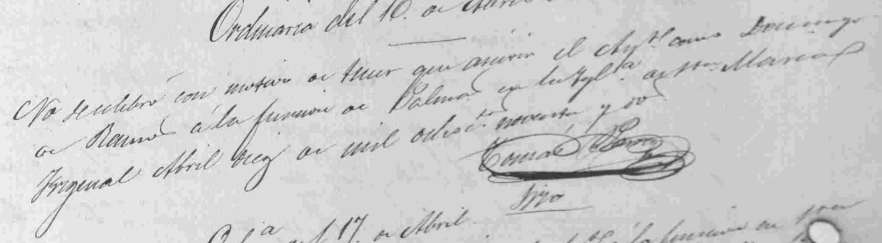 Ordinaria del 10 de Abril
No se celebró con motivo de tener que asistir el Aytº como Domingo
de Ramos á la funcion de Palmas en la Yglª de Stª Maria
Fregenal Abril diez de mil ochosctº noventa y
Tomás
Srio
del 17 de Abril
á la funcion de